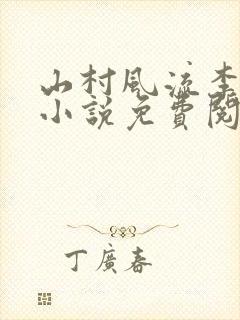 山村風流李
小說免費閱
丁廣春